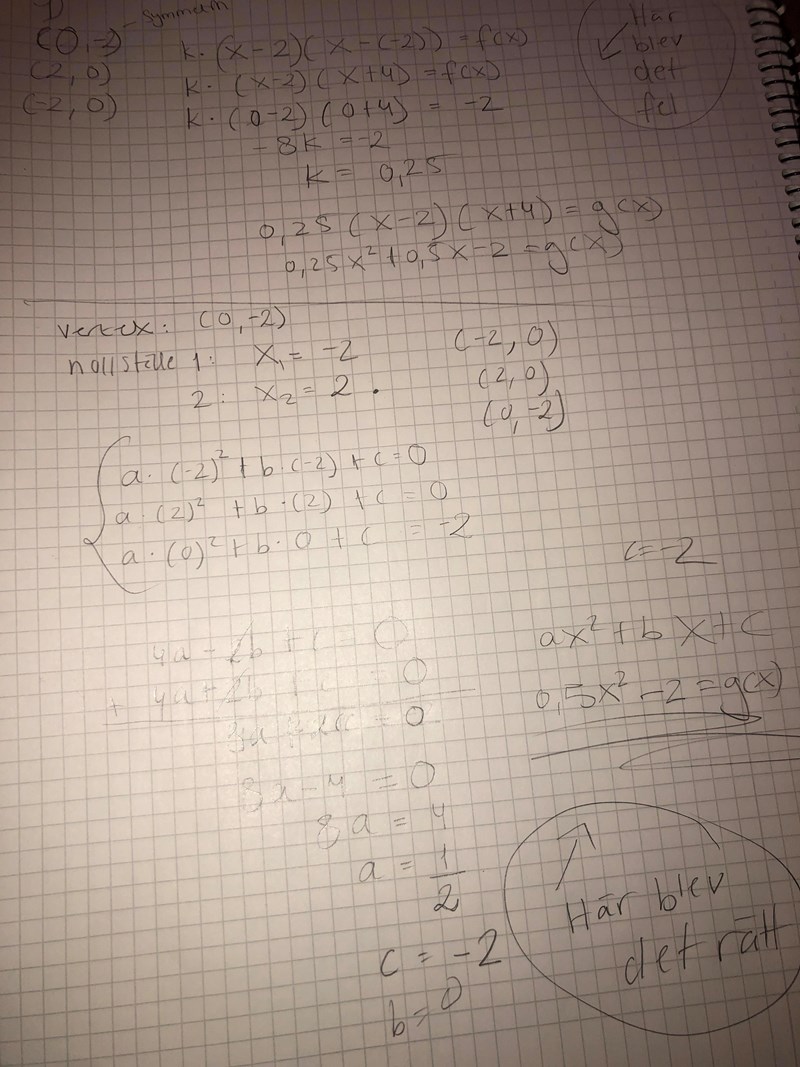 1)
(0,-2) - Symmetri
(2,0)
(-2,0)
k·(x-2)(x-(-2)) = f(x)
k·(x-2)(x+4) = f(x)
k·(0-2)(0+4) = -2
-8k = -2
k = 0,25
0,25(x-2)(x+4) = g(x)
0,25x²+0,5x-2 = g(x)
Här
blev
det
fel
vertex: (0,-2)
nollställe 1: x₁ = -2
2: x₂ = 2
(-2,0)
(2,0)
(0,-2)
a·(-2)²+b·(-2)+c=0
a·(2)²+b·(2)+c=0
a·(0)²+b·0+c = -2
c=-2
4a-2b+c=0
+ 4a+2b+c=0
8a+2c=0
8a-4=0
8a=4
a=1/2
c=-2
b=0
ax²+bx+c
0,5x²-2=g(x)
Här blev
det rätt